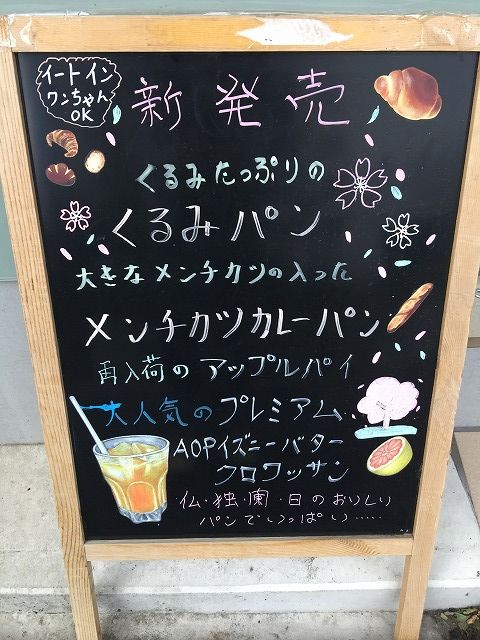 イートイン
ワンちゃん
OK
新発売
くるみたっぷりの
くるみパン
大きなメンチカツの入った
メンチカツカレーパン
再入荷のアップルパイ
大人気のプレミアム
AOPイズニーバター
クロワッサン
仏・独・墺・日のおいしい
パンでいっぱい.....